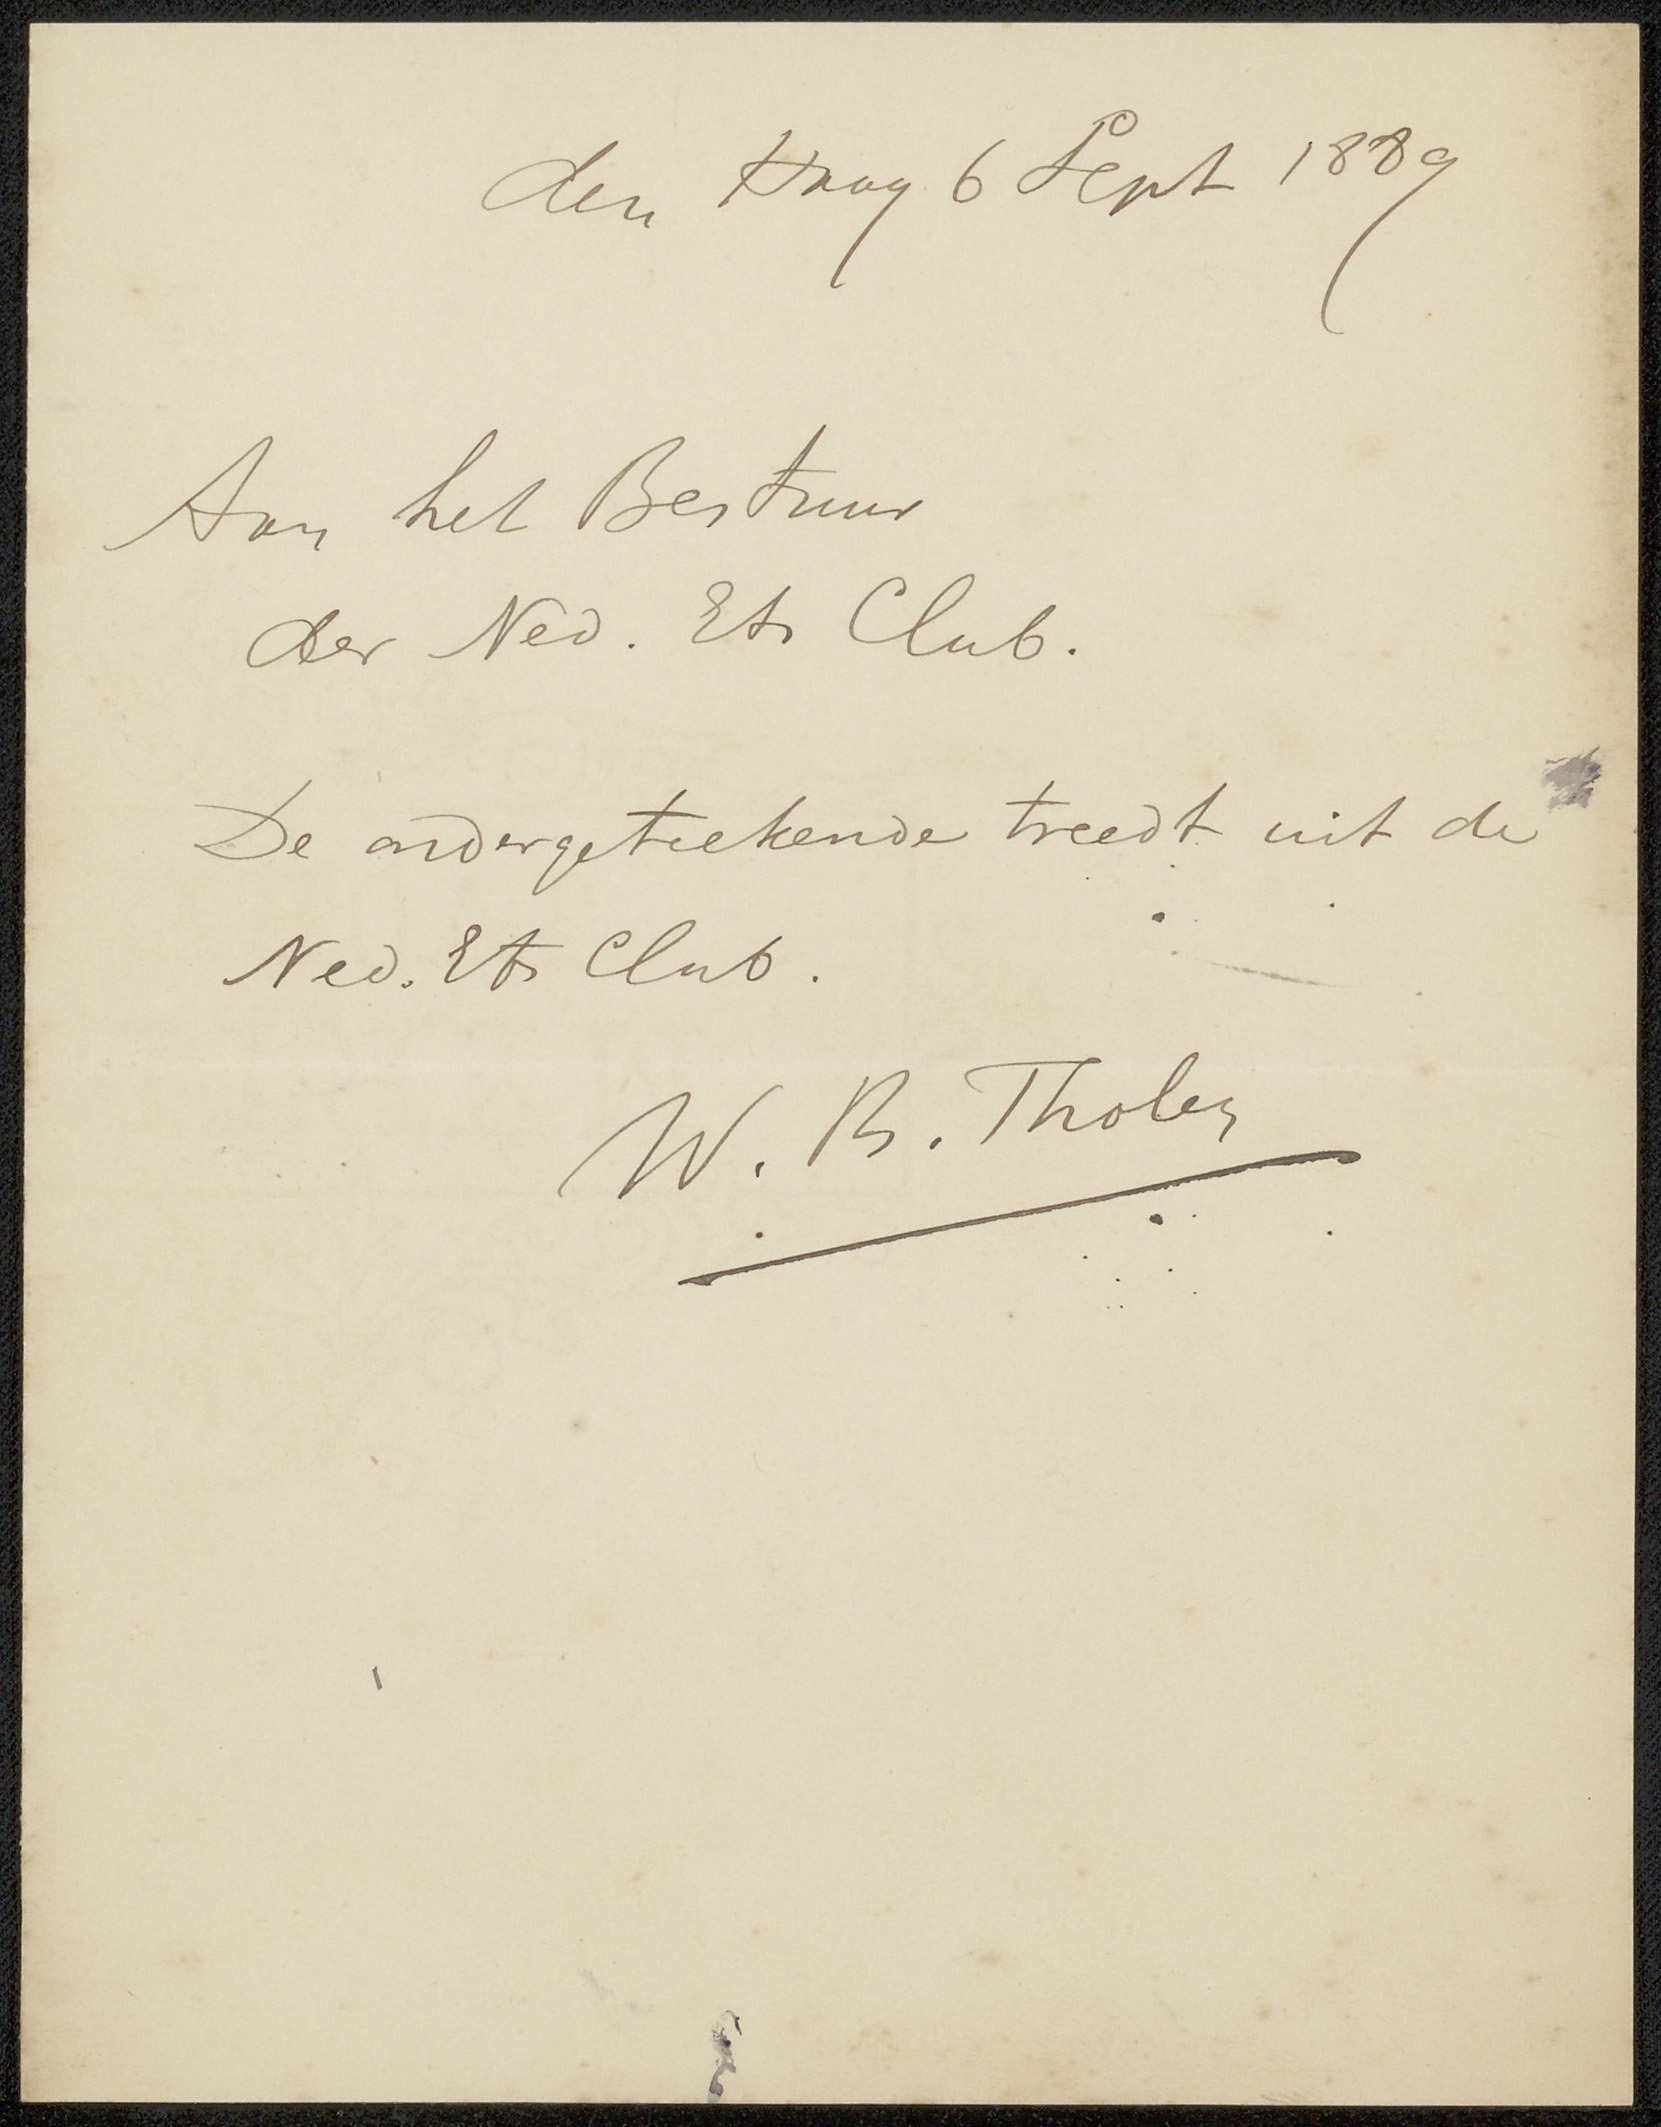 den Haag 6 Sept 1889
Aan het Bestuur
der Ned. Ets Club.
De ondergeteekende treedt uit de
Ned. Ets Club.
W. B. Tholen